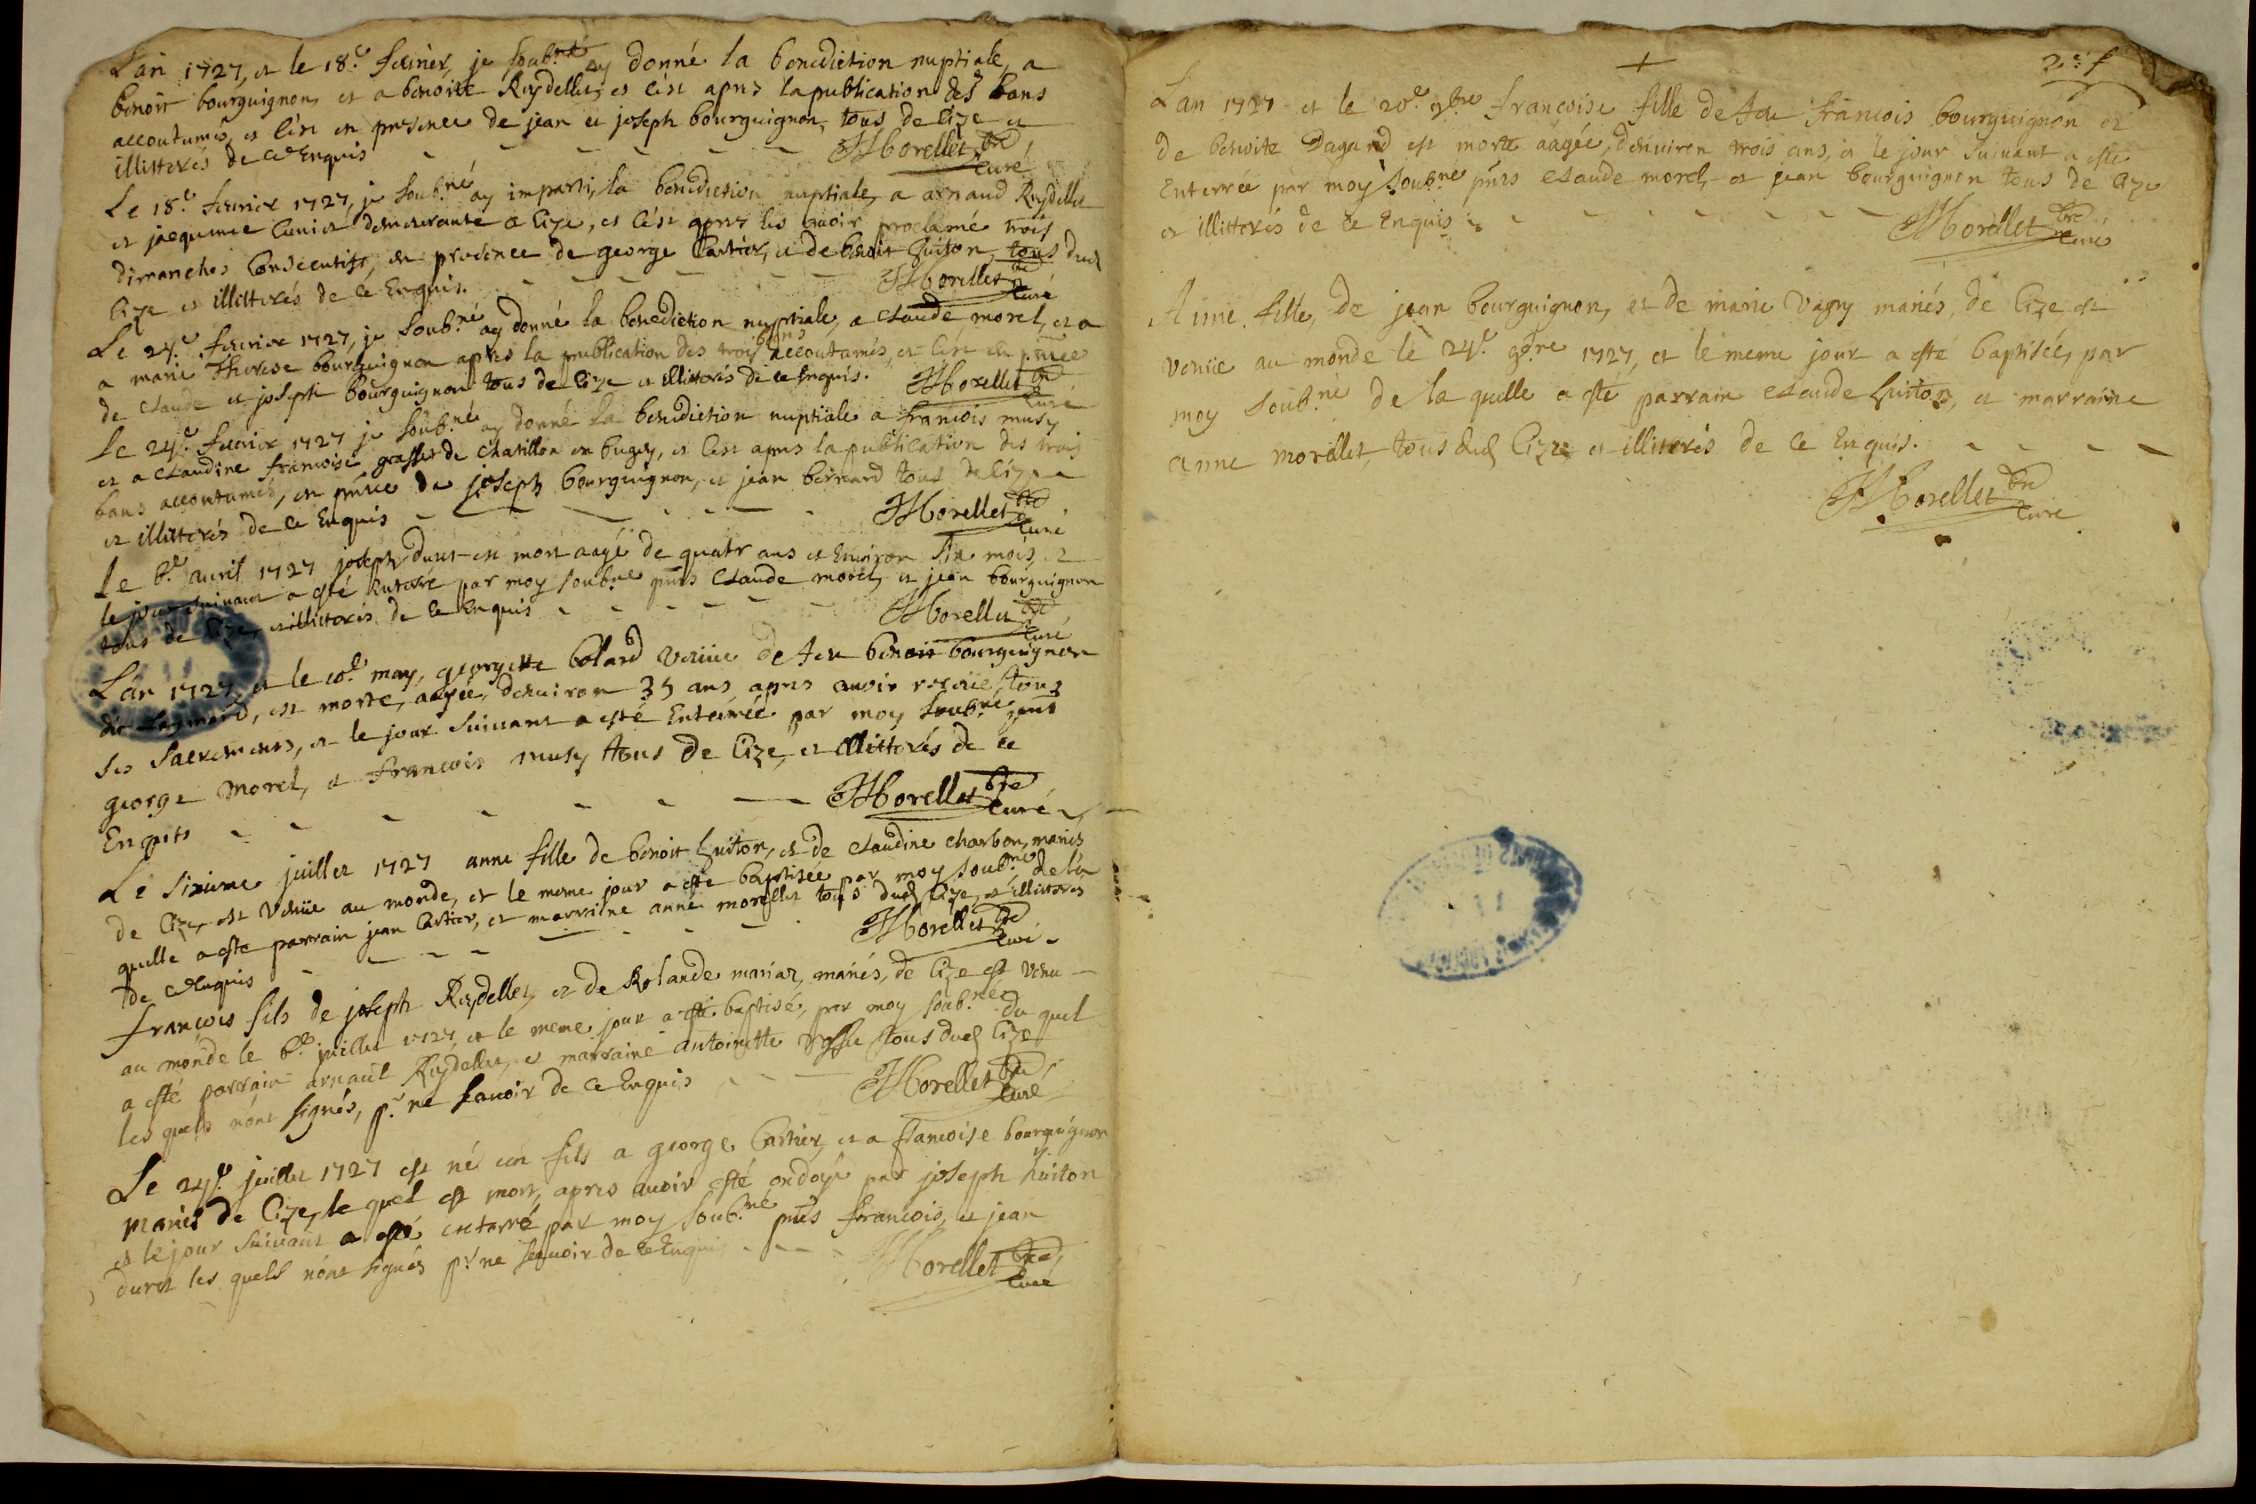 L'an 1727, et le 18.e feurier, je soub.né ay donné la benediction nuptiale, a
benoit bourguignon, et a benoitte Reydellet, et c'est apres la publication des bans
accoutumés, et c'est en presence de jean et joseph bourguignon, tous de Cize et
illitterés de ce Enquis Morellet pbre Curé
Le 18.e feurier 1727, je soub.né ay imparti, la benediction nuptiale, a arnaud Reydellet
et jacquemee demeurante a Cize, et c'est apres les auoir proclamé trois
dimanches Consecutifs, en presence de george Cartier, et de benoit Guiton, tous dud
Cize et illitterés de ce Enquis. Morellet pbre Curé
Le 24.e feurier 1727, je soub.né ay donné la benediction nuptiale, a claude morel, et a
a marie Therese bourguignon apres la publication des trois bans accoutumés, et c'est en pñce
de claude et joseph bourguignon tous de Cize et illitterés de ce Enquis. Morellet pbre Curé
Le 24.e feurier 1727 je soub.né ay donné la benediction nuptiale a francois musy
et a claudine francoise grasset de chatillon en bugey, et c'est apres la publication des trois
bans accoutumés, en pñce de joseph bourguignon, et jean bernard tous de Cize
et illitterés de ce Enquis Morellet pbre Curé
Le 6.e auril 1727 joseph duret est mort aagé de quatr ans et Enuiron six mois, et
le jour suiuant a esté Enterré par moy soub.né pñts claude morel, et jean bourguignon
tous de Cize, et illitterés de ce Enquis Morellet pbre Curé
L'an 1727 et le 10.e may, georgette bolard veuue de feu benoit bourguignon
dit, est morte, aagée, denuiron 35 ans, apres auoir receüe, tous
ses sacremens, et le jour suiuant a esté Enterrée par moy soub.né, pñts
george Morel, et francois musy tous de Cize, et illitterés de ce
Enquis Morellet pbre Curé
Le sixieme juillet 1727 anne fille de benoit Guiton, et de claudine charbon, mariés
de Cize, est venüe au monde, et le meme jour a esté baptisée par moy soub.né de la
quelle a esté parrain jean Cartier, et marraine anne morellet tous dud Cize, et illitterés
de ce Enquis Morellet pbre Curé
francois fils de joseph Reydellet, et de Rolande mariaz, mariés, de Cize est venu
au monde le 6.e juillet 1727, et le meme jour a esté baptisé, par moy soub.né du quel
a esté parrain arnaud Reydellet, et marraine antoinette tous dud Cize
les quels n'ont signés, p.r ne scauoir de ce Enquis Morellet pbre Curé
Le 24.e juillet 1727 est né un fils a george Cartier, et a francoise bourguignon
mariés de Cize, le quel est mort, apres auoir esté ondoyé par joseph Guiton
et le jour suiuant a esté enterré par moy soub.né pñts francois, et jean
duret les quels n'ont signés p.r ne scauoir de ce Enquis Morellet pbre Curé
2.e f
L'an 1727 et le 20.e 9bre francoise fille de feu francois bourguignon et
de benoite Dagand est morte aagée, denuiron trois ans, et le jour suiuant a esté
Enterrée par moy soub.né pñts claude morel, et jean bourguignon tous de Cize
et illitterés de ce Enquis Morellet pbre Curé
Aimé fille, de jean bourguignon, et de marie Vagny mariés, de Cize est
venüe au monde le 24.e 9bre 1727, et le meme jour a esté baptisée, par
moy soub.né de la quelle a esté parrain claude Guiton, et marraine
anne morellet, tous dud Cize et illitterés de ce Enquis.
Morellet pbre Curé